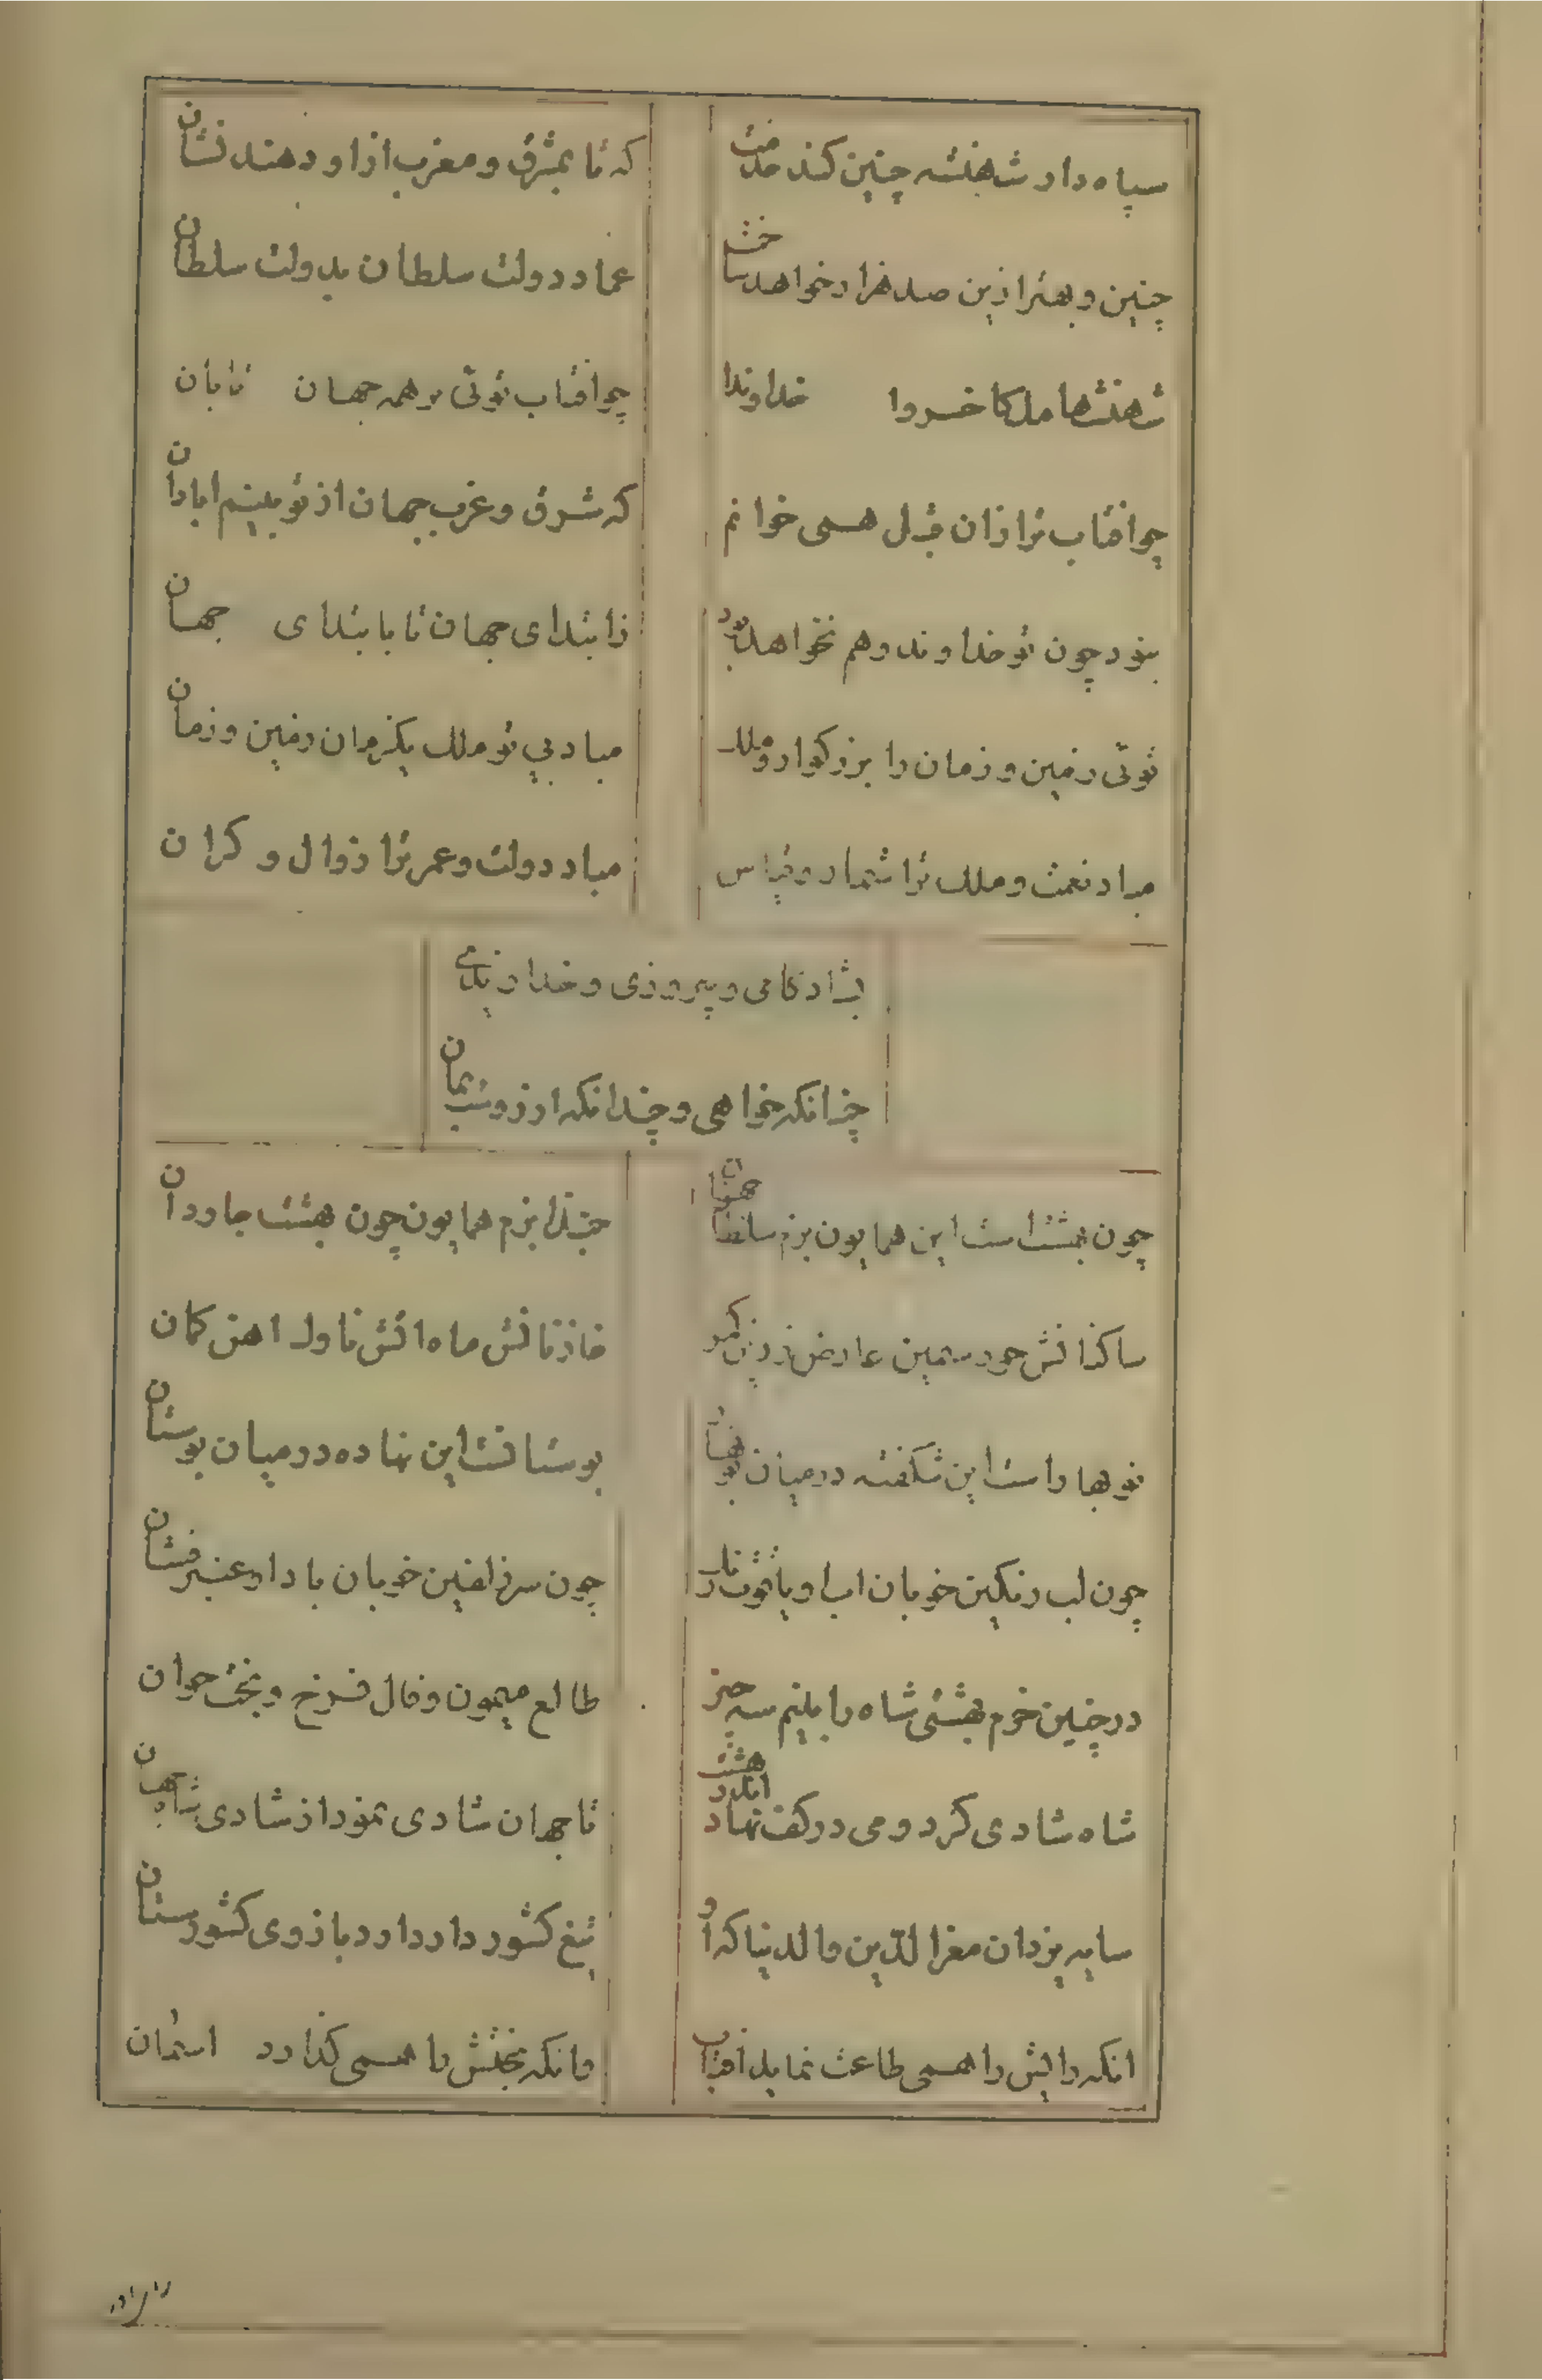 سپاه دار شهنشه چنین کند خدمت
که تا بمشرق و مغرب ازاو دهند نشان
چنین و بهتر ازین صد هزار خواهد ساخت
عماد دولت سلطان بدولت سلطان
شهنشها ملکا خسروا خداوندا
چو افتاب توئی بر همه جهان تابان
چو افتاب ترا زان قبل همی خوانم
که شرق و غرب جهان از تو بینم ابادان
نبود چون تو خداوند و هم نخواهد بود
ز ابتدای جهان تا بابتدای جهان
توئی زمین و زمان را بزرکوار و ملک
مباد بی تو ملک یکزمان زمین و زمان
مباد نعمت و ملک ترا شمار و قیاس
مباد دولت و عمر ترا زوال و کران
بشادکامی و پیروزی و خداوندی
چندانکه خواهی و چندانکه ارزوست بمان
چون بهشت است این همایون بزم سلطان جهان
حبذا بزم همایون چون بهشت جاودان
ساکنانش حور سیمین عارض زرین کمر
خازنانش ماه اتش ناوک اهن کمان
نوبهار است این شکفته در میان بوستان
بوستانست این نهاده در میان بوستان
چون لب رنکین خوبان ابر او یاقوت بار
چون سر زلفین خوبان باد او عنبر فشان
در چنین خرم بهشتی شاه را بینم سه چیز
طالع میمون و فال فرخ و بخت جوان
شاه شادی کرد و می در کف نهاد اندر بهشت
تا جهان شادی نمود از شادی شاه جهان
سایه یزدان معز الدین و الدنیا که او
تیغ کشور دار دارد بازوی کشورستان
انکه رایش را همی طاعت نماید افتاب
وانکه بختش را همی کذارد اسمان